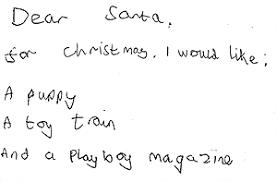 Dear Santa,
for christmas, I would like;
A puppy
A toy train
And a playboy magazine